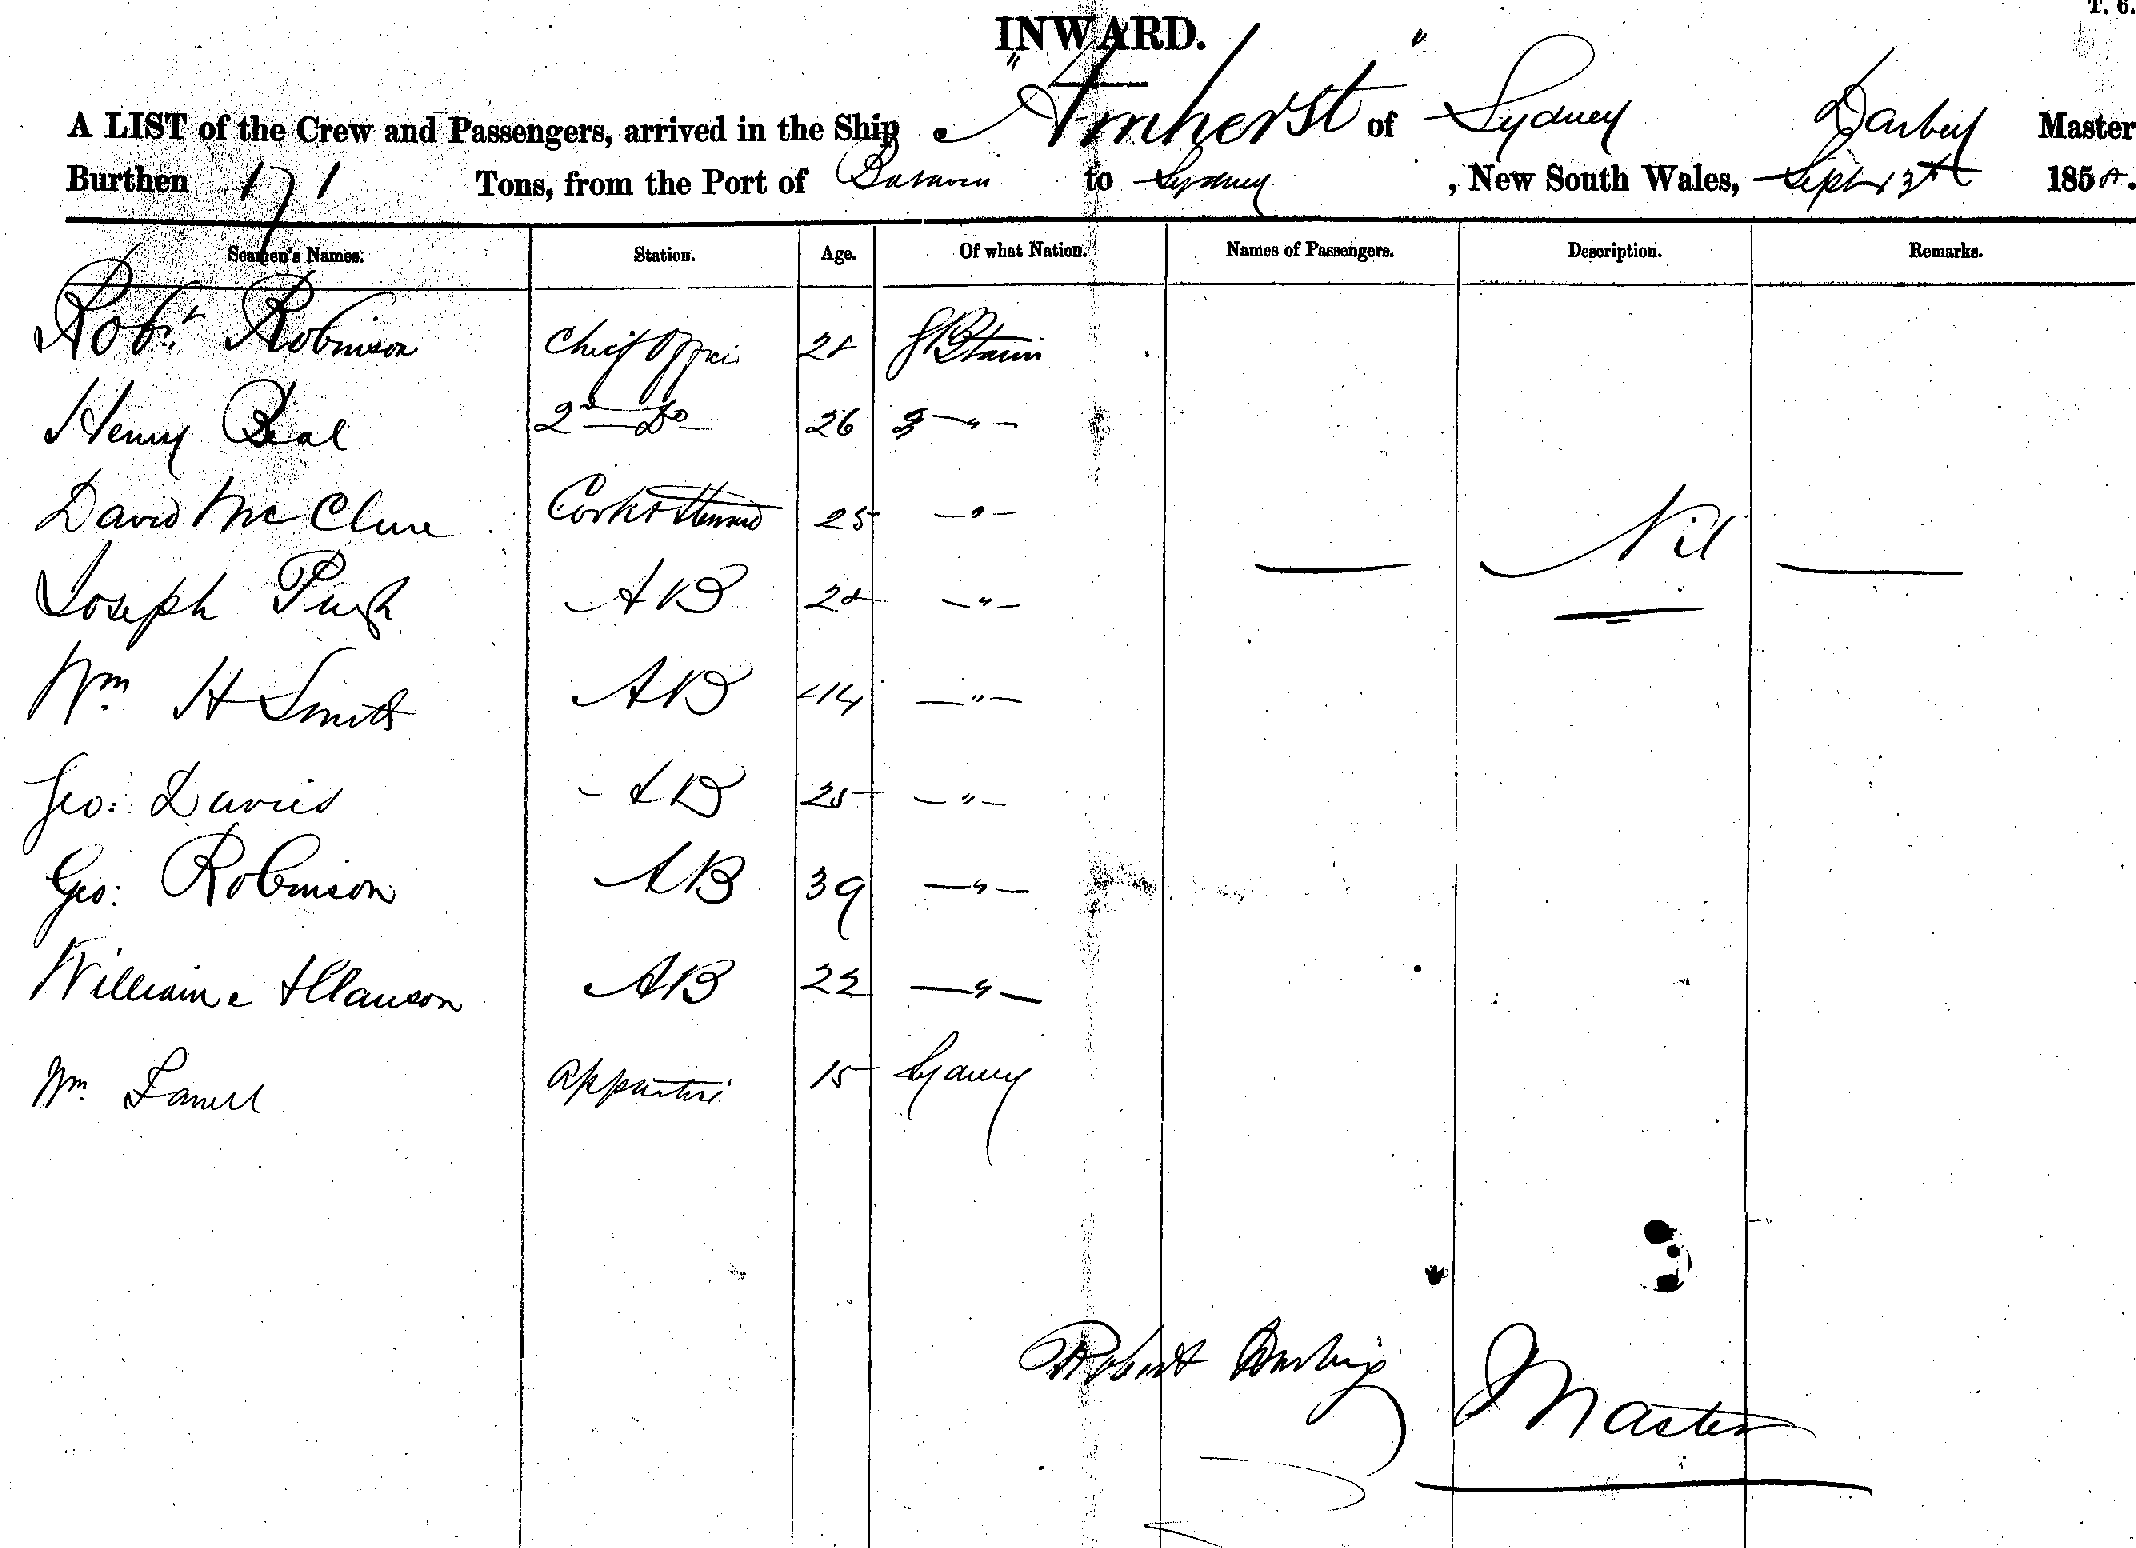 T. 6.
INWARD.
A LIST of the Crew and Passengers, arrived in the Ship "Amherst" of Sydney Darby Master
Burthen 171 Tons, from the Port of Batavia to Sydney, New South Wales, Sept 13th 185
Seamen's Names. Station. Age. Of what Nation. Names of Passengers. Description. Remarks.
Robt Robinson Chief Officer G Britain
Henry Beal 2nd Do 26 "
David McClure Cook & Steward 25 "
Nil
Joseph Pugh AB "
Wm H Smith AB "
Geo: Davies AB 25 "
Geo: Robinson AB 39 "
William AB 22 "
Wm 15 Sydney
Robert Master